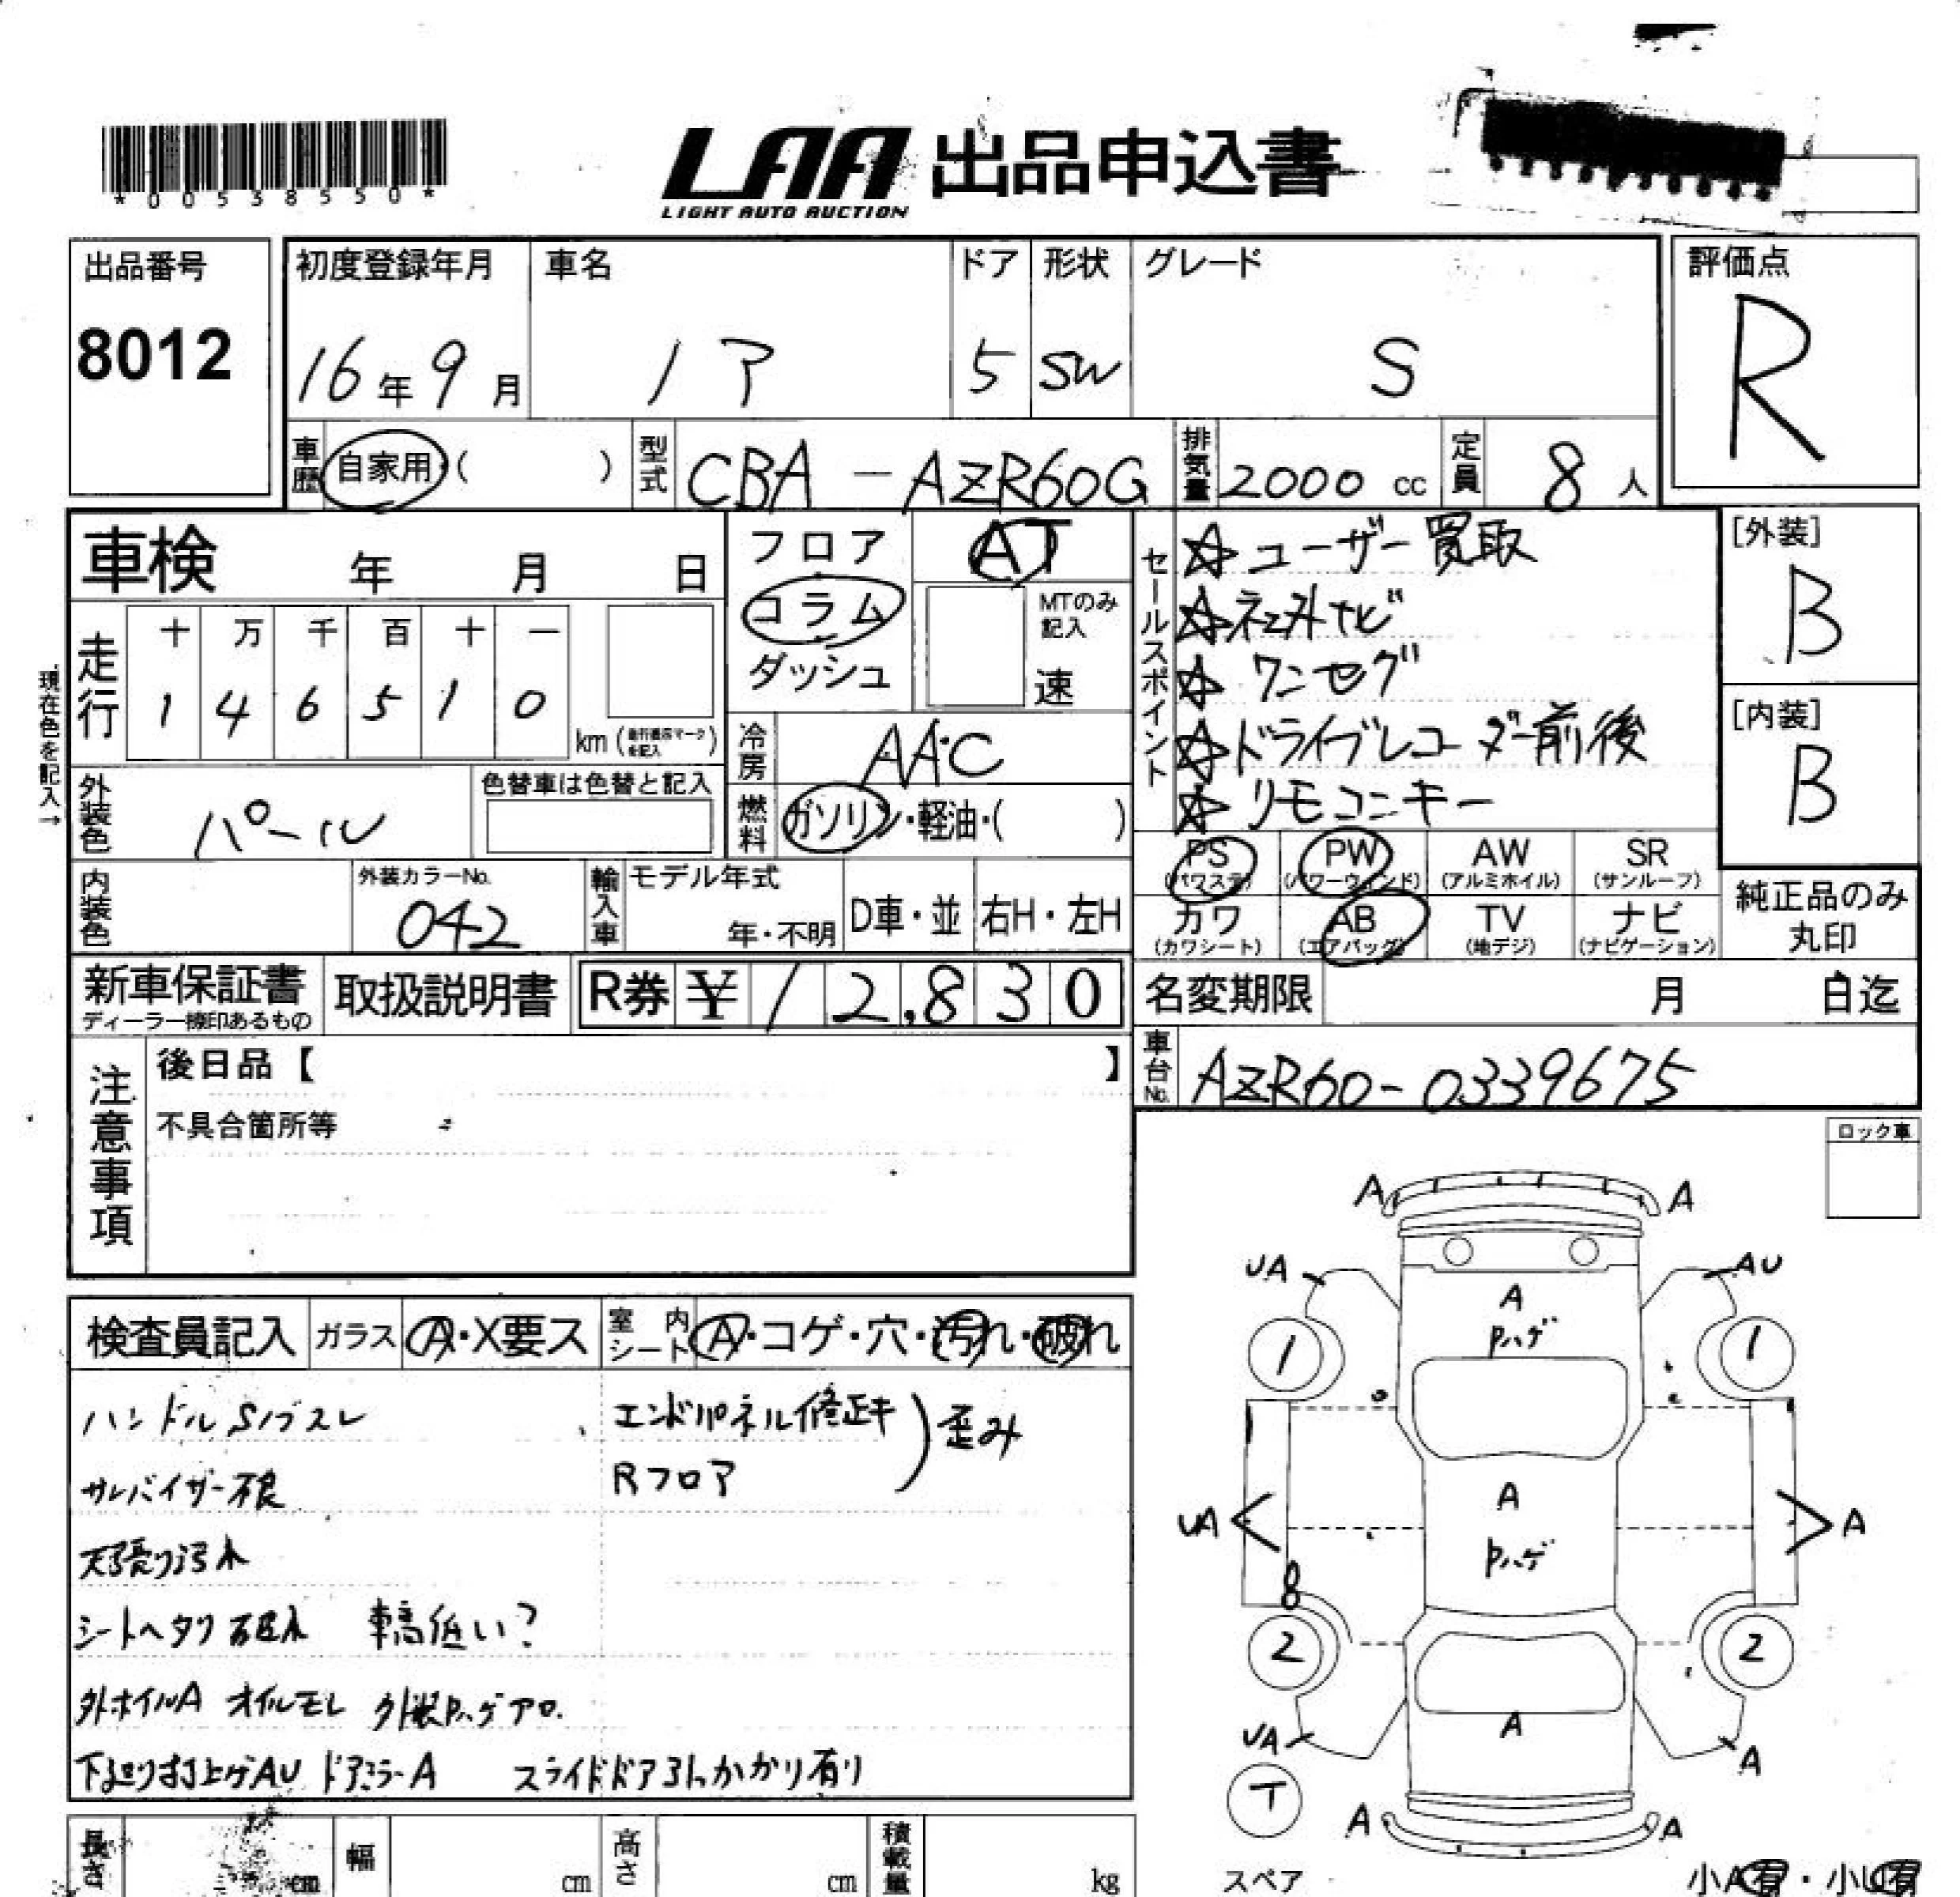 *00538550*
LAA 出品申込書
LIGHT AUTO AUCTION
出品番号
8012
初度登録年月
16年9月
車名
ノア
ドア
5
形状
SW
グレード
S
評価点
R
車歴
自家用・( )
型式
CBA-AZR60G
排気量
2000 cc
定員
8人
車検 年 月 日
フロア
コラム
ダッシュ
AT
MTのみ記入
速
セールスポイント
☆ユーザー買取
☆社外ナビ
☆ワンセグ
☆ドライブレコーダー前後
☆リモコンキー
[外装]
B
[内装]
B
現在色を記入→
走行
十 万 千 百 十 一
1 4 6 5 1 0
km
冷房
AAC
外装色
パール
色替車は色替と記入
燃料
ガソリン・軽油・( )
PS
(パワステ)
PW
(パワーウィンド)
AW
(アルミホイル)
SR
(サンルーフ)
カワ
(カワシート)
AB
(エアバッグ)
TV
(地デジ)
ナビ
(ナビゲーション)
純正品のみ
丸印
内装色
外装カラーNo.
042
輸入車
モデル年式
年・不明
D車・並
右H・左H
新車保証書
ディーラー捺印あるもの
取扱説明書
R券 ¥12,830
名変期限 月 日迄
車台No.
AZR60-0339675
注意事項
後日品【 】
不具合箇所等
ロック車
検査員記入
ガラス A・X要ス
室内シート A・コゲ・穴・汚れ・破れ
ハンドルS
エンドパネル修正キ
Rフロア
歪み
サンバイザー不良
天張り汚れ
シートヘタリ 破れ 車高低い?
外ホイルA オイルモレ 外装Pハゲ
下廻り打上ゲAU ドアミラーA スライドドア引っかかり有り
A A
UA AU
A
Pハゲ
1 1
UA A
A
Pハゲ
8
2 2
A
UA A
T
A A
スペア
小A有・小U有
長さ cm
幅 cm
高さ cm
積載量 kg